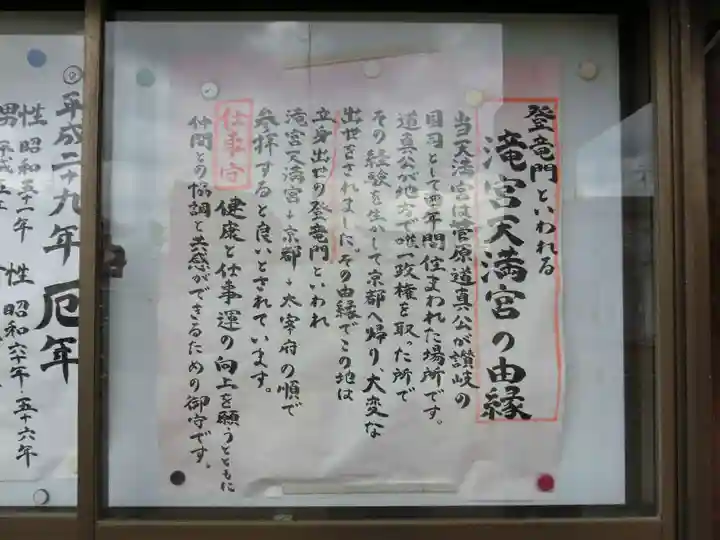 登竜門といわれる
滝宮天満宮の由縁
当天満宮は菅原道真公が讃岐の
国司として四年間住まわれた場所です。
道真公が地方で唯一政権を取った所で
その経験を生かして京都へ帰り、大変な
出世をされました。その由縁でこの地は
立身出世の登竜門といわれ
滝宮天満宮→京都→太宰府の順で
参拝すると良いとされています。
仕事守
健康と仕事運の向上を願うとともに
仲間との協調と共感ができるための御守です。
平成二十九年 厄年
性 昭和五十一年 性 昭和六十年・五十六年
男 平成五年